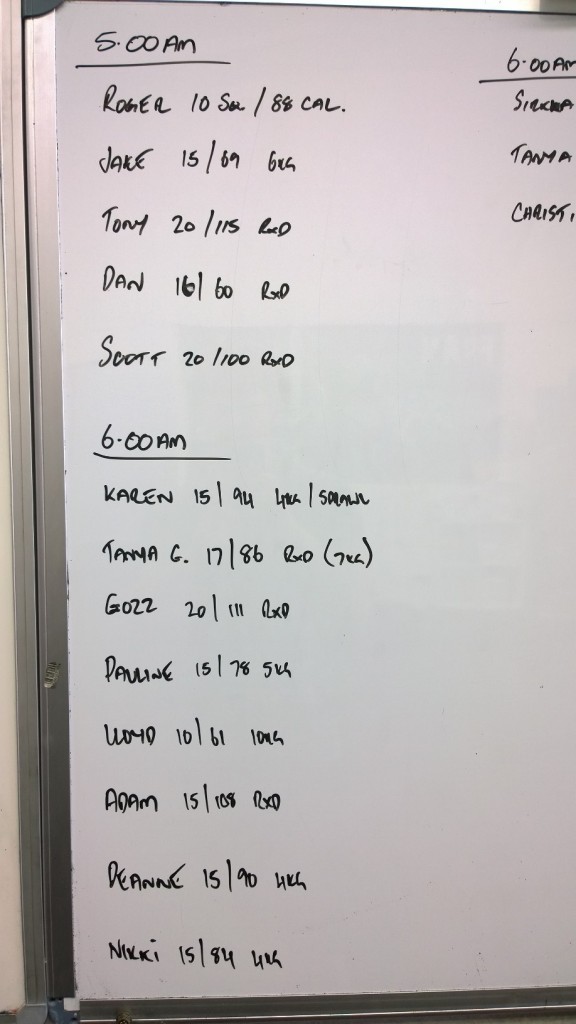 5.00AM
ROGER 10 / 88 CAL.
JAKE 15/69 6KG
TONY 20/115 RxD
DAN 16/60 RxD
SCOTT 20/100 RxD
6.00AM
KAREN 15/94 4KG /
TANYA G. 17/86 RxD (7KG)
GOZZ 20/111 RxD
PAULINE 15/78 5KG
LLOYD 10/61 10KG
ADAM 15/108 RxD
DEANNE 15/90 4KG
NIKKI 15/84 4KG
6.00AM
TANYA
CHRISTI